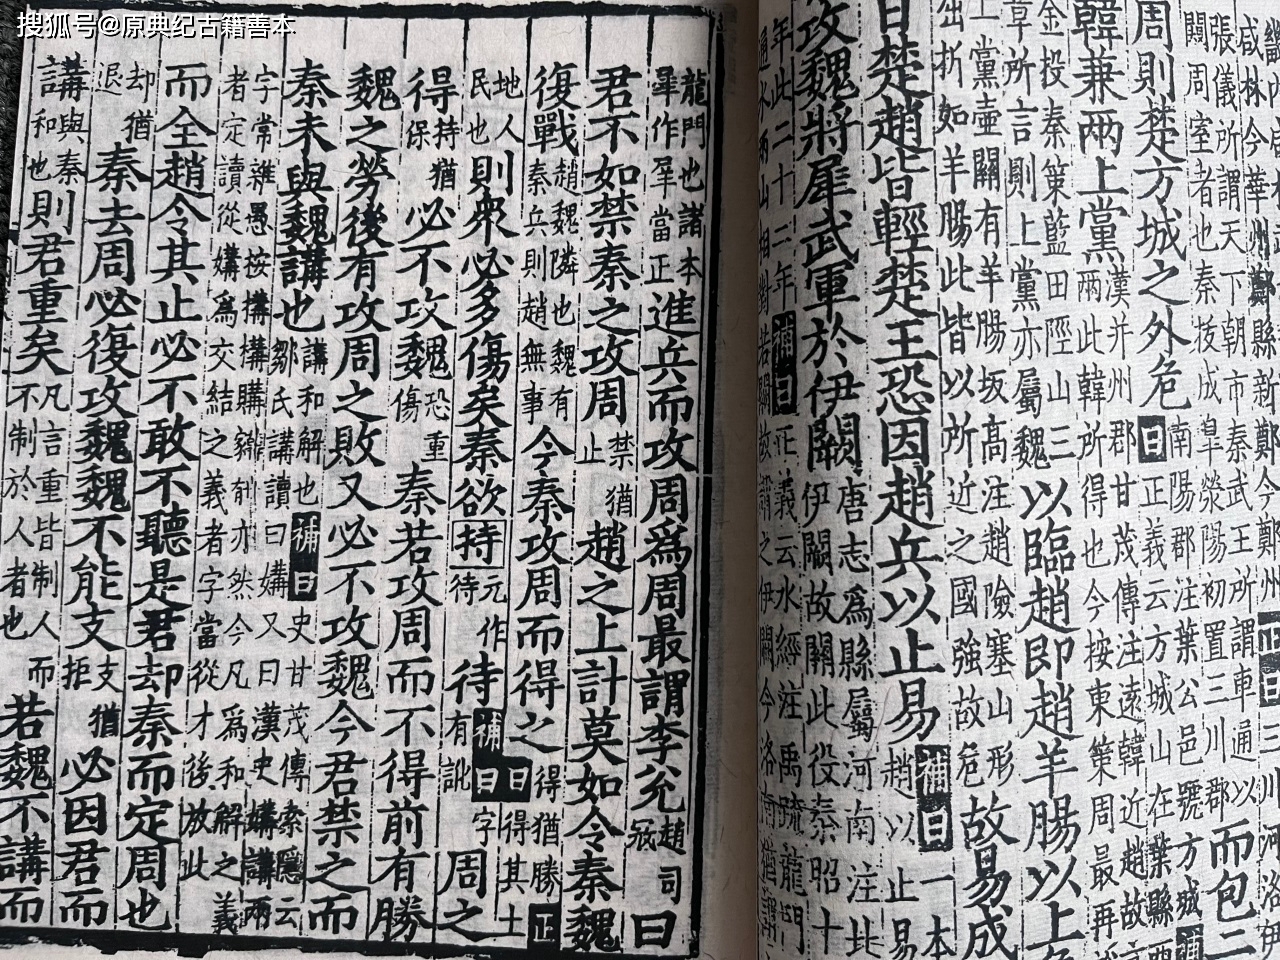 咸林今華州鄭縣新鄭今鄭州正曰三川河洛伊
張儀所謂天下朝市秦武王所謂車通以
闕周室者也秦拔成皋滎陽初置三川郡而包二
周則楚方城之外危南陽郡注葉公邑號方城補
曰正義云方城山在葉縣西
韓兼兩上黨漢并州郡甘茂傳注遠韓近趙故言
兩此韓所得也今按東策周最再
金投秦策藍田陘山三
草所言則上黨亦屬魏以臨趙即趙羊腸以上
上黨壺關有羊腸坂高注趙險塞山形
出折如羊腸此皆以所近之國強故危故易成
曰楚趙皆輕楚王恐因趙兵以止易趙以止易補曰一本
攻魏將犀武軍於伊闕唐志為縣屬河南注此
伊闕故關此役秦昭十
年此二十二年補曰正義云水經注禹疏龍門
通水兩山相對若闕故謂之伊闕今洛南猶謂
龍門也諸本犀作犀當正進兵而攻周為周最謂李兌趙司寇曰
君不如禁秦之攻周禁猶止趙之上計莫如令秦魏
復戰趙魏隣也魏有秦兵則趙無事今秦攻周而得之得猶勝正曰得其土
地人民也則衆必多傷矣秦欲持元作待待補曰字有訛周之
得持猶保必不攻魏恐重傷秦若攻周而不得前有勝
魏之勞後有攻周之敗又必不攻魏今君禁之而
秦未與魏講也講和解也補曰史甘茂傳索隱云鄒氏講讀曰媾又曰漢史媾講兩
字常雜愚按搆構購亦然今凡為和解之義者定讀從媾為交結之義者字當從才後放此
而全趙令其止必不敢不聽是君却秦而定周也
却猶退秦去周必復攻魏魏不能支支猶拒必因君而
講與秦和也則君重矣凡言重皆制人而不制於人者也若魏不講而
搜狐号@原典纪古籍善本